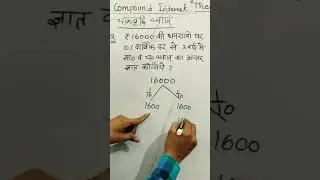 Compound Interest "The
चक्रवृद्धि ब्याज
₹16000 की धनराशि पर
10% वार्षिक दर से 2 वर्ष में
सा० व च० ब्याज का अन्तर
ज्ञात कीजिये ?
16000
1/10 1/10
1600 1600